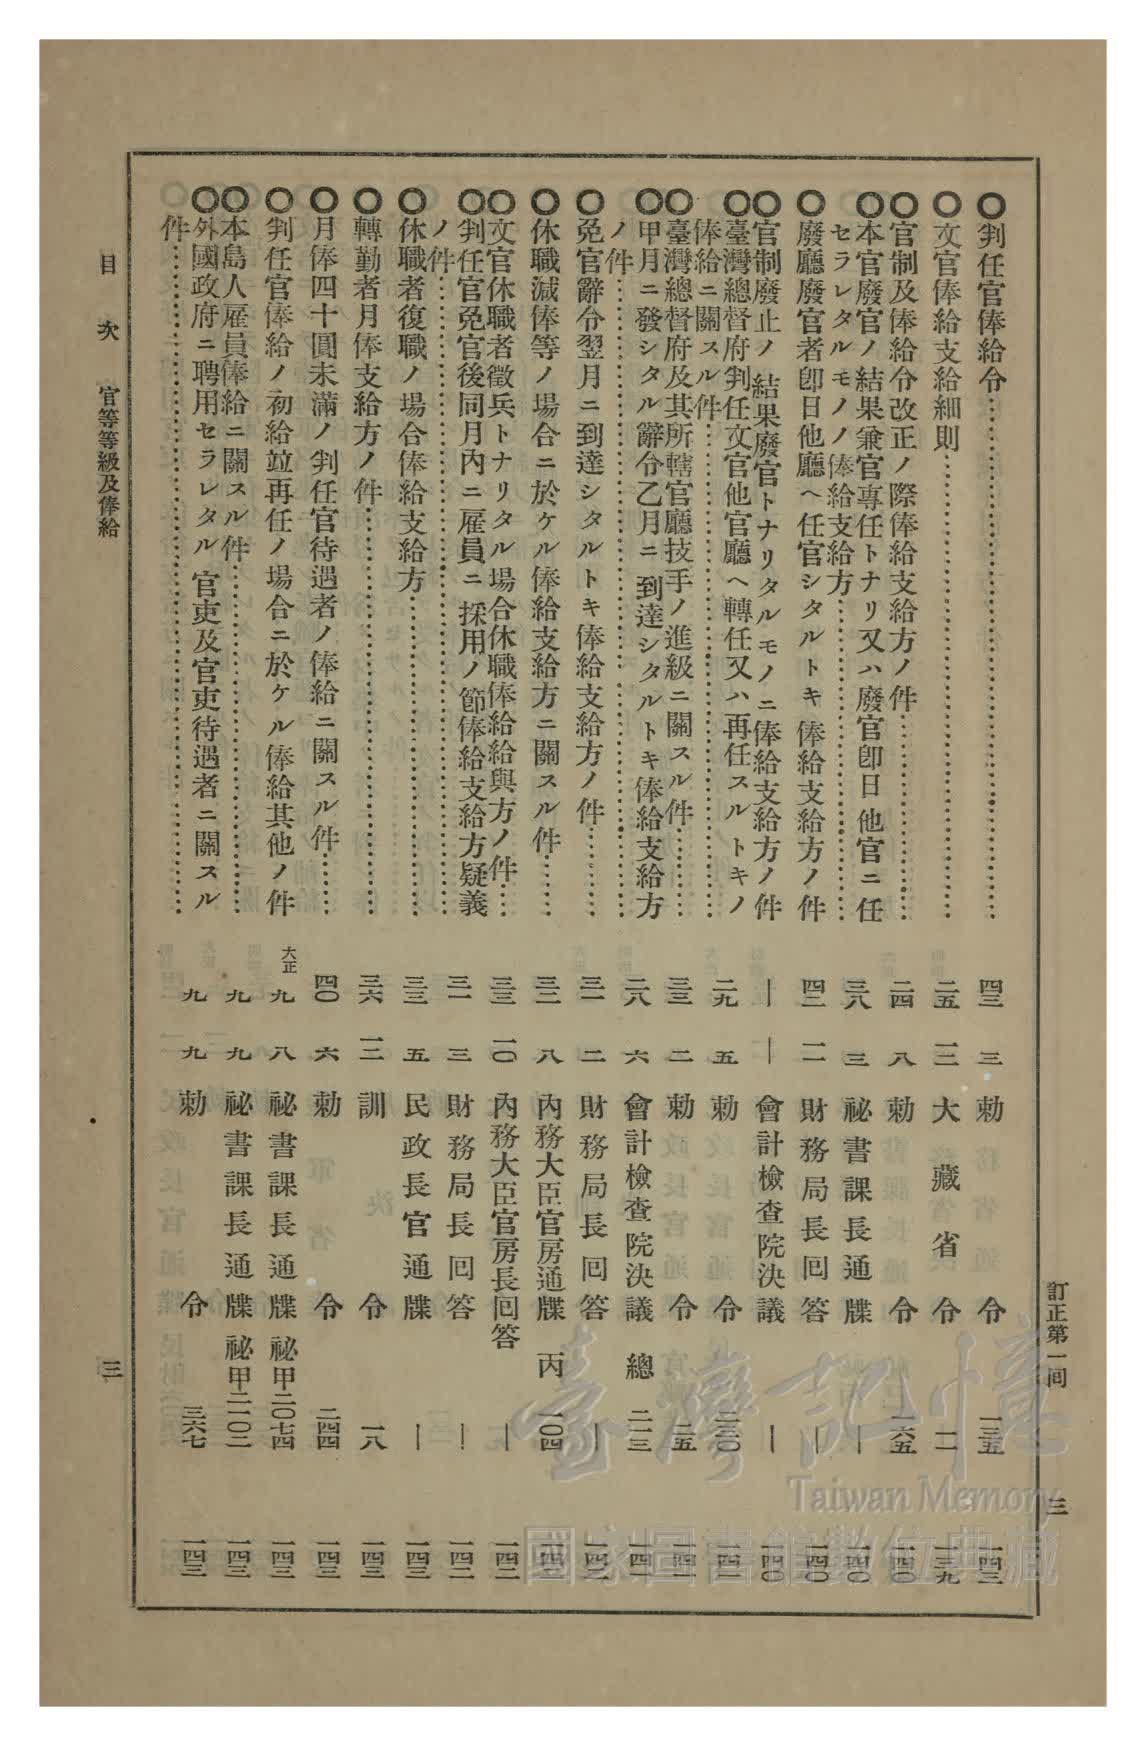 訂正第一回 三
◎判任官俸給令 四三 三 勅令 一三五
◎文官俸給支給細則 二五 一二 大藏省令 一一 一三九
◎官制及俸給令改正ノ際俸給支給方ノ件 二四 八 勅令 一六五 一四〇
◎本官廢官ノ結果兼官專任トナリ又ハ廢官卽日他官ニ任
セラレタルモノノ俸給支給方 三八 三 祕書課長通牒 — 一四〇
◎廢廳廢官者卽日他廳ヘ任官シタルトキ俸給支給方ノ件 四二 一一 財務局長回答 — 一四〇
◎官制廢止ノ結果廢官トナリタルモノニ俸給支給方ノ件 — — 會計檢查院決議 — 一四〇
◎臺灣總督府判任文官他官廳ヘ轉任又ハ再任スルトキノ
俸給ニ關スル件 二九 五 勅令
◎臺灣總督府及其所轄官廳技手ノ進級ニ關スル件 三三 二 勅令 二五
◎甲月ニ發シタル辭令乙月ニ到達シタルトキ俸給支給方
ノ件 二八 六 會計檢查院決議 總 二一三
◎免官辭令翌月ニ到達シタルトキ俸給支給方ノ件 三一 二 財務局長回答 —
◎休職減俸等ノ場合ニ於ケル俸給支給方ニ關スル件 三二 八 內務大臣官房通牒 丙 一〇四
◎文官休職者徵兵トナリタル場合休職俸給給與方ノ件 三三 一〇 內務大臣官房長回答 —
◎判任官免官後同月內ニ雇員ニ採用ノ節俸給支給方疑義
ノ件 三一 三 財務局長回答 —
◎休職者復職ノ場合俸給支給方 三三 五 民政長官通牒 — 一四三
◎轉勤者月俸支給方ノ件 三六 一二 訓令 一八 一四三
◎月俸四十圓未滿ノ判任官待遇者ノ俸給ニ關スル件 四〇 六 勅令 二四四 一四三
◎判任官俸給ノ初給竝再任ノ場合ニ於ケル俸給其他ノ件 大正九 八 祕書課長通牒 祕甲二〇七四 一四三
◎本島人雇員俸給ニ關スル件 九 九 祕書課長通牒 祕甲二一〇二 一四三
◎外國政府ニ聘用セラレタル官吏及官吏待遇者ニ關スル
件 九 九 勅令 三六七 一四三
目次 官等等級及俸給 三
臺灣記憶
Taiwan Memory
國家圖書館數位典藏